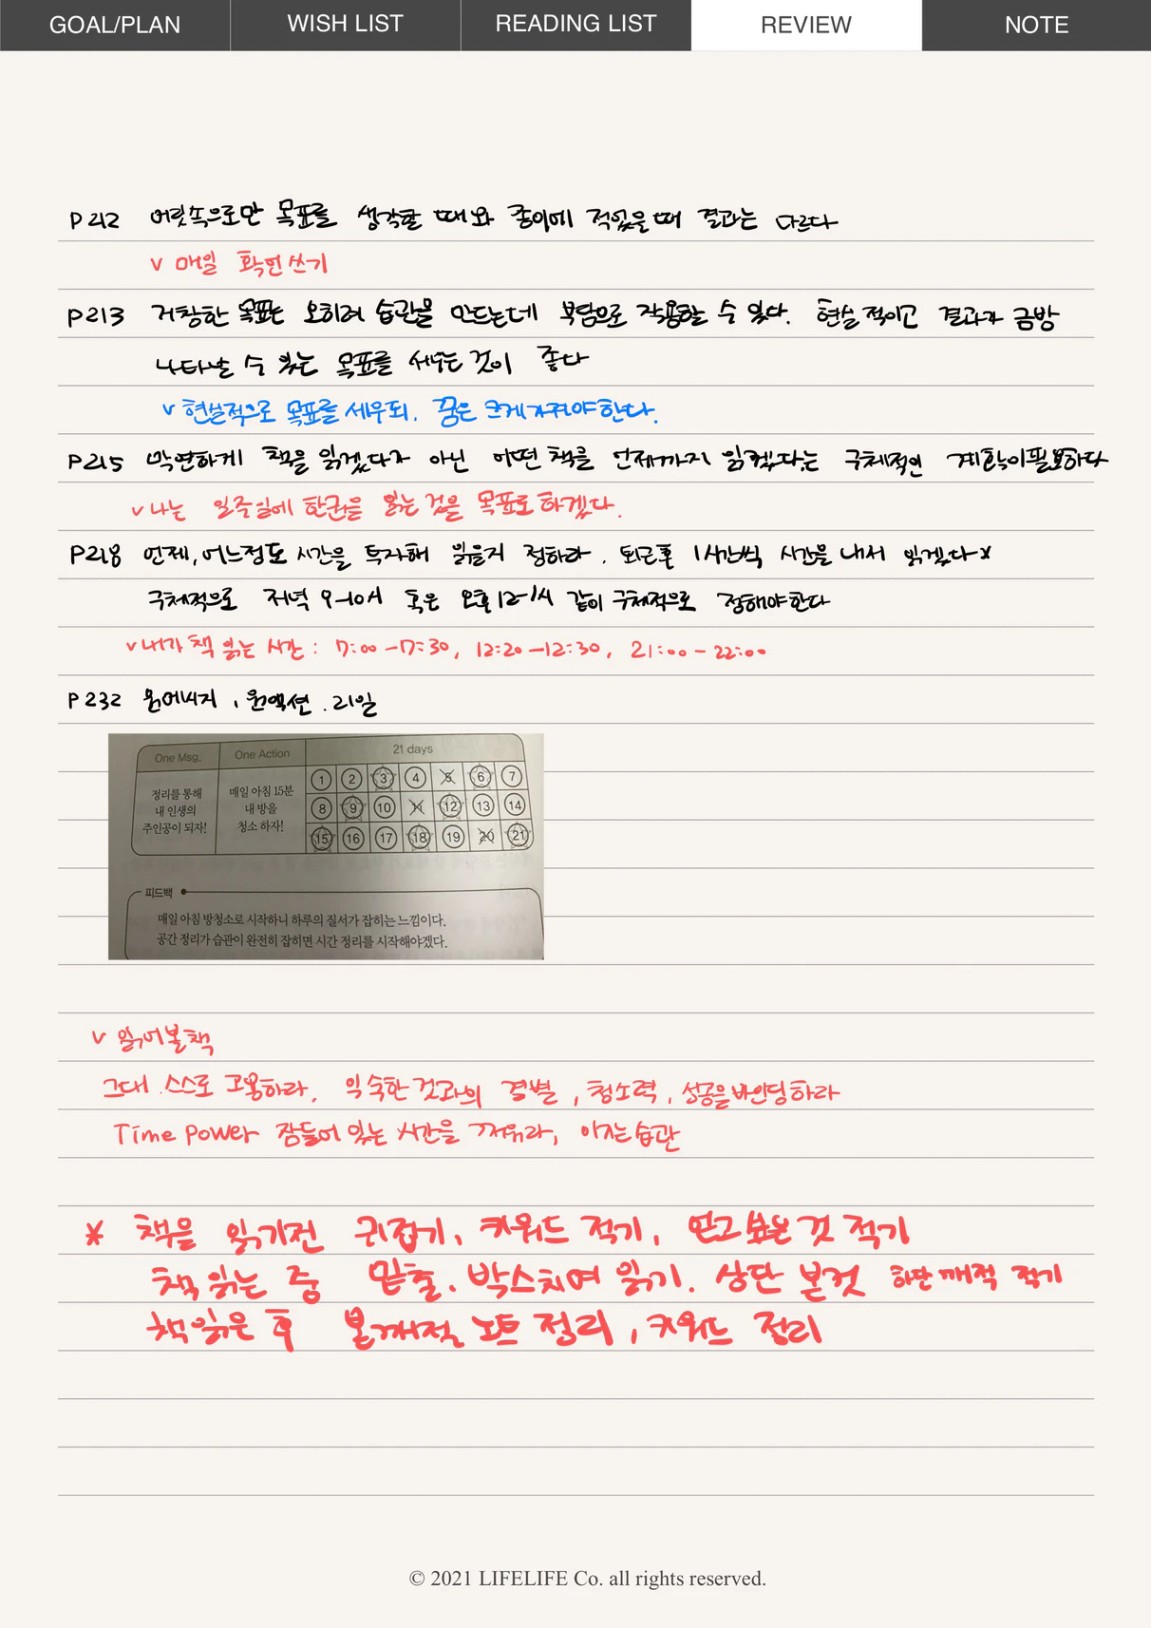 GOAL/PLAN WISH LIST READING LIST REVIEW NOTE
P212 머릿속으로만 목표를 생각할 때와 종이에 적었을 때 결과는 다르다
v 매일 확언쓰기
P213 거창한 목표는 오히려 습관을 만드는데 부담으로 작용할 수 있다. 현실적이고 결과가 금방
나타날 수 있는 목표를 세우는 것이 좋다
v 현실적으로 목표를 세우되, 꿈은 크게 가져야한다.
P215 막연하게 책을 읽겠다가 아닌 어떤 책을 언제까지 읽겠다는 구체적인 계획이필요하다
v 나는 일주일에 한권을 읽는 것을 목표로 하겠다.
P218 언제, 어느정도 시간을 투자해 읽을지 정하라. 퇴근후 1시간씩 시간을 내서 읽겠다x
구체적으로 저녁 9-10시 혹은 오후 12-1시 같이 구체적으로 정해야한다
v 내가 책 읽는 시간 : 7:00-7:30, 12:20-12:30, 21:00-22:00
P232 원메시지, 원액션. 21일
One Msg. One Action 21 days
정리를 통해 내 인생의 주인공이 되자!
매일 아침 15분 내 방을 청소 하자!
1 2 3 4 5 6 7
8 9 10 11 12 13 14
15 16 17 18 19 20 21
피드백
매일 아침 방청소로 시작하니 하루의 질서가 잡히는 느낌이다.
공간 정리가 습관이 완전히 잡히면 시간 정리를 시작해야겠다.
v 읽어볼책
그대 스스로 고용하라, 익숙한 것과의 결별, 청소력, 성공을바인딩하라
Time Power 잠들어 있는 시간을 깨워라, 아자는습관
* 책을 읽기전 귀접기, 키워드 적기, 얻고싶은 것 적기
책 읽는 중 밑줄. 박스치며 읽기. 상단 본것 하단 깨적 적기
책읽은 후 본깨적 노트 정리, 키워드 정리
© 2021 LIFELIFE Co. all rights reserved.